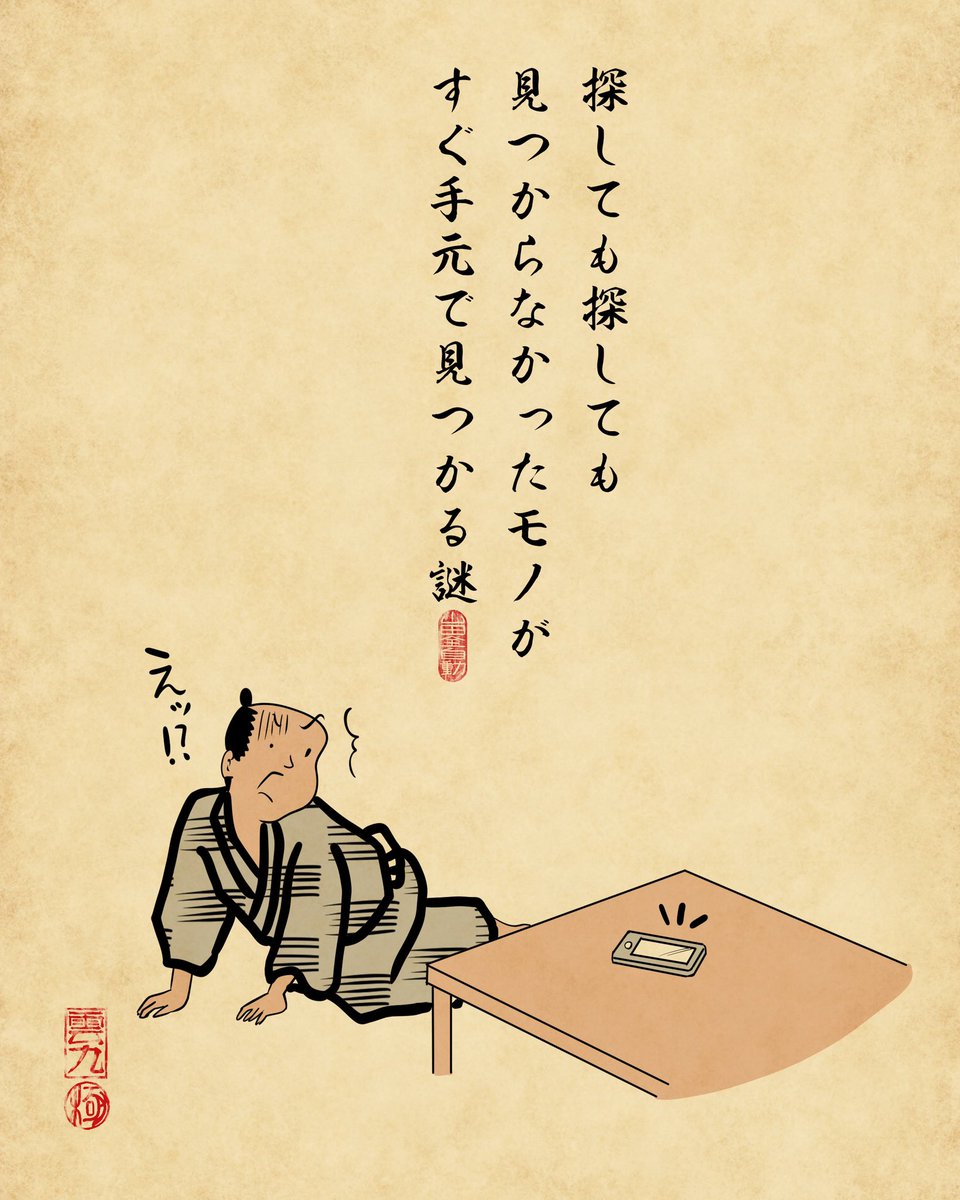 探しても探しても
見つからなかったモノが
すぐ手元で見つかる謎
えッ!?